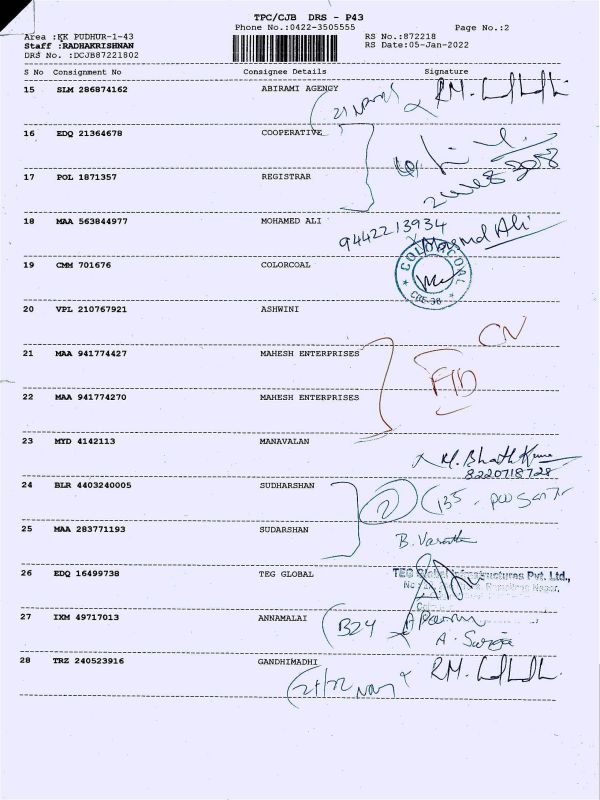 TPC/CJB DRS - P43
Phone No.:0422-3505555
Page No.:2
Area :KK PUDHUR-1-43
RS No.:872218
Staff :RADHAKRISHNAN
RS Date:05-Jan-2022
DRS No. :DCJB87221802
S No Consignment No Consignee Details Signature
15 SLM 286874162 ABIRAMI AGENGY
16 EDQ 21364678 COOPERATIVE
17 POL 1871357 REGISTRAR
18 MAA 563844977 MOHAMED ALI
9442213934
Ali
19 CMM 701676 COLORCOAL
COLORCOAL
CBE-38
20 VPL 210767921 ASHWINI
CN
21 MAA 941774427 MAHESH ENTERPRISES
22 MAA 941774270 MAHESH ENTERPRISES
23 MYD 4142113 MANAVALAN
8220718728
24 BLR 4403240005 SUDHARSHAN
2
25 MAA 283771193 SUDARSHAN
26 EDQ 16499738 TEG GLOBAL
TEG Global Infrastructures Pvt. Ltd.,
27 IXM 49717013 ANNAMALAI
B24
28 TRZ 240523916 GANDHIMADHI